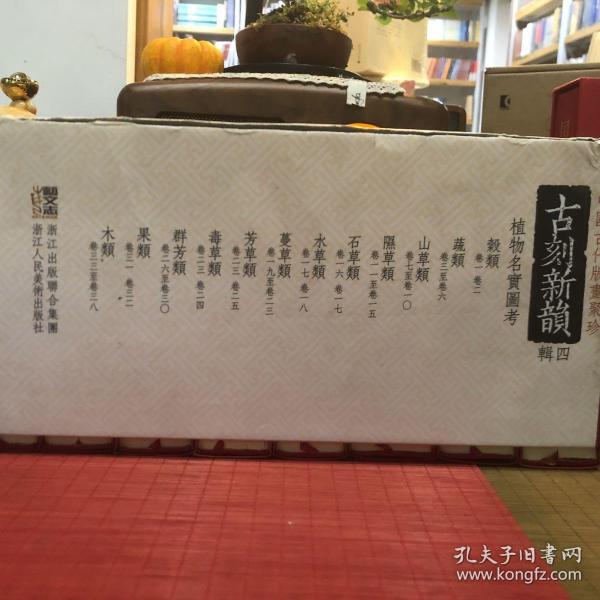 中國古代版畫叢珍
古刻新韻
四輯
植物名實圖考
穀類
卷一 卷二
蔬類
卷三至卷六
山草類
卷七至卷一〇
隰草類
卷一一至卷一五
石草類
卷一六 卷一七
水草類
卷一七 卷一八
蔓草類
卷一九至卷二三
芳草類
卷二三 卷二五
毒草類
卷二三 卷二四
群芳類
卷二六至卷三〇
果類
卷三一 卷三二
木類
卷三三至卷三八
藝文志
浙江出版聯合集團
浙江人民美術出版社
孔夫子旧书网
www.kongfz.com